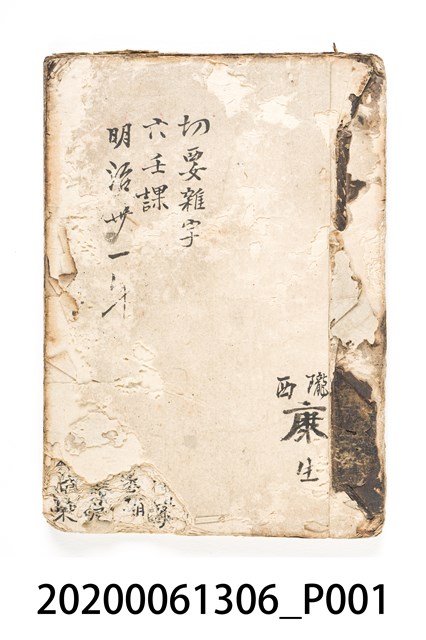 切要雜字
六壬課
明治卅一年
隴西
康生
20200061306_P001